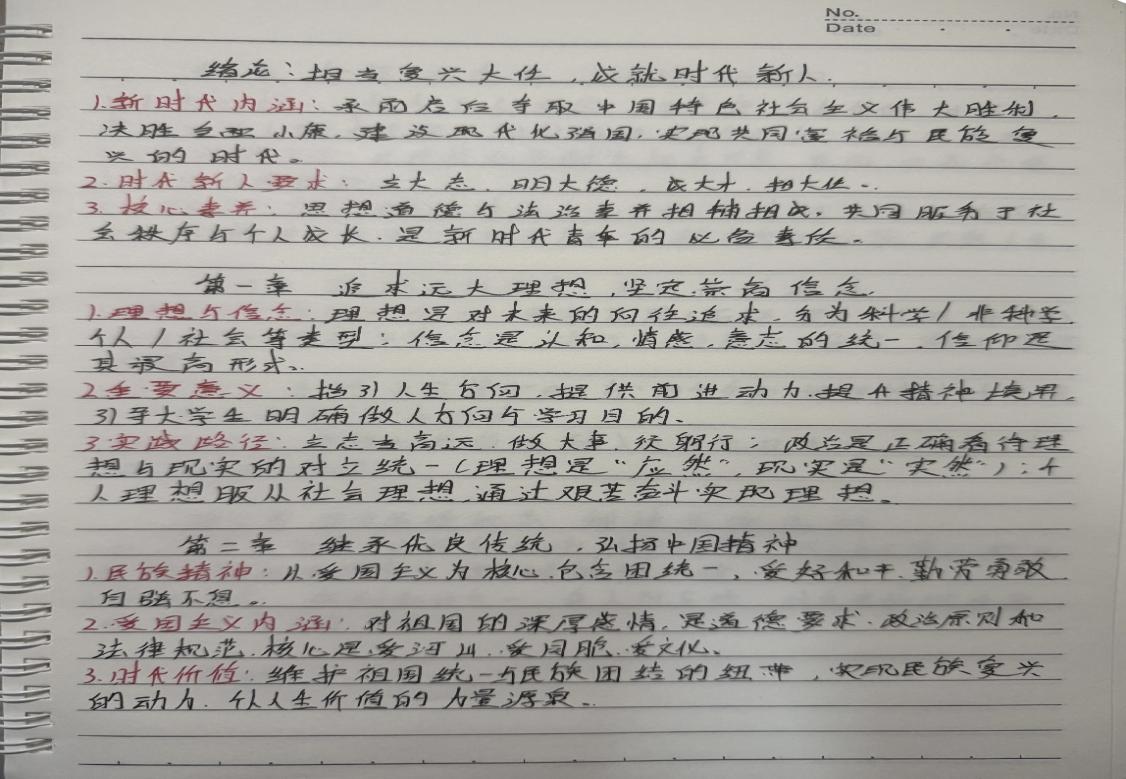 No.
Date
绪论:担当复兴大任,成就时代新人.
1.新时代内涵:承前启后争取中国特色社会主义伟大胜利,
决胜全面小康,建设现代化强国,实现共同富裕与民族复
兴的时代。
2.时代新人要求:立大志、明大德、成大才、担大任.
3.核心素养:思想道德与法治素养相辅相成,共同服务于社
会秩序与个人成长,是新时代青年的必备素质。
第一章 追求远大理想,坚定崇高信念.
1.理想与信念:理想是对未来的向往追求,分为科学/非科学
个人/社会等类型;信念是认知,情感,意志的统一,信仰是
其最高形式.
2.重要意义:指引人生方向,提供前进动力.提升精神境界,
引导大学生明确做人方向与学习目的、
3.实践路径:立志当高远,做大事,须躬行;政治是正确看待理
想与现实的对立统一(理想是“应然”,现实是“实然”);个
人理想服从社会理想,通过艰苦奋斗实现理想。
第二章 继承优良传统,弘扬中国精神
1.民族精神:以爱国主义为核心,包含团统一、爱好和平、勤劳勇敢
自强不息。
2.爱国主义内涵:对祖国的深厚感情,是道德要求、政治原则和
法律规范,核心是爱河山、爱同胞、爱文化、
3.时代价值:维护祖国统一与民族团结的纽带,实现民族复兴
的动力、个人人生价值的力量源泉.